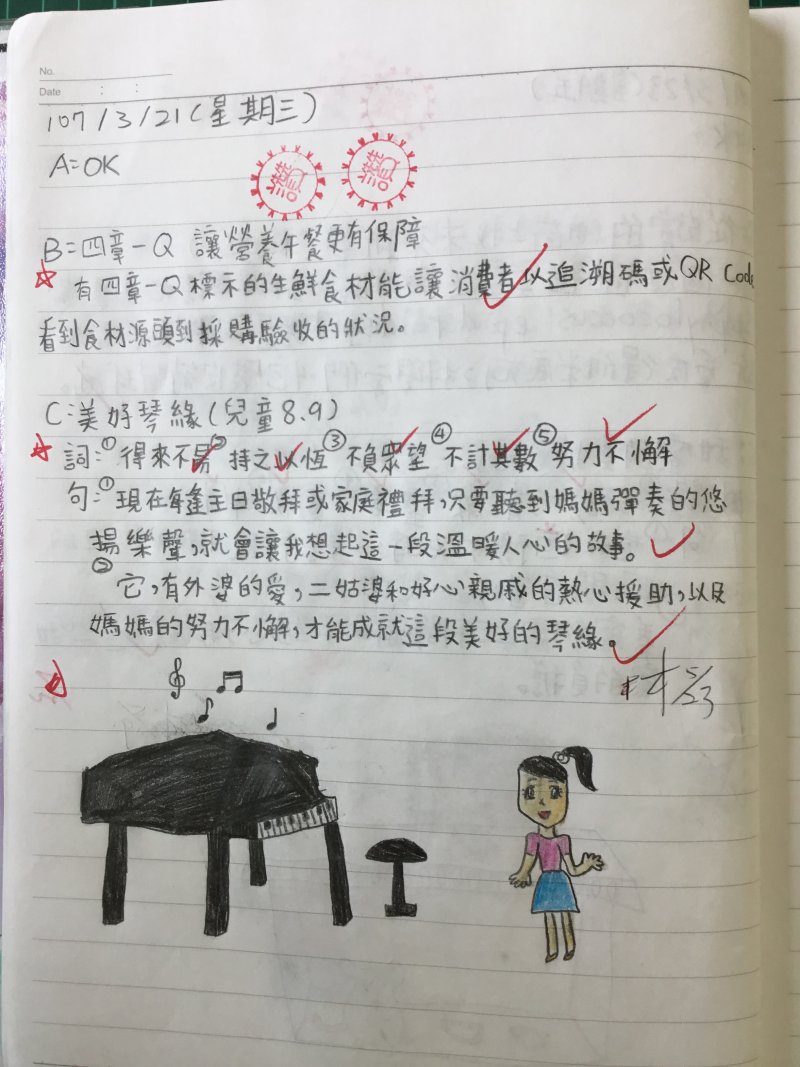 No.
Date : :
107/3/21(星期三)
A=OK
讚 讚
B=四章一Q 讓營養午餐更有保障
有四章一Q標示的生鮮食材能讓消費者以追溯碼或QR Code
看到食材源頭到採購驗收的狀況。
C:美好琴緣(兒童8.9)
詞:①得來不易②持之以恆③不負眾望④不計其數⑤努力不懈
句:①現在每逢主日敬拜或家庭禮拜,只要聽到媽媽彈奏的悠
揚樂聲,就會讓我想起這一段溫暖人心的故事。
②它,有外婆的愛,二姑婆和好心親戚的熱心援助,以及
媽媽的努力不懈,才能成就這段美好的琴緣。
林